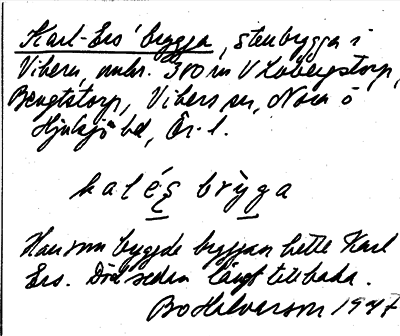 Karl-Ers' brygga, stenbrygga i
Vikern, omkr. 380 m V Lobergstorp,
Bengtstorp, Vikers sn, Nora o
Hjulsjö bd, Ör. l.
kalés brỳga
Han som byggde bryggan hette Karl
Ers. Död sedan långt tillbaka.
Bo Halvarson 1947